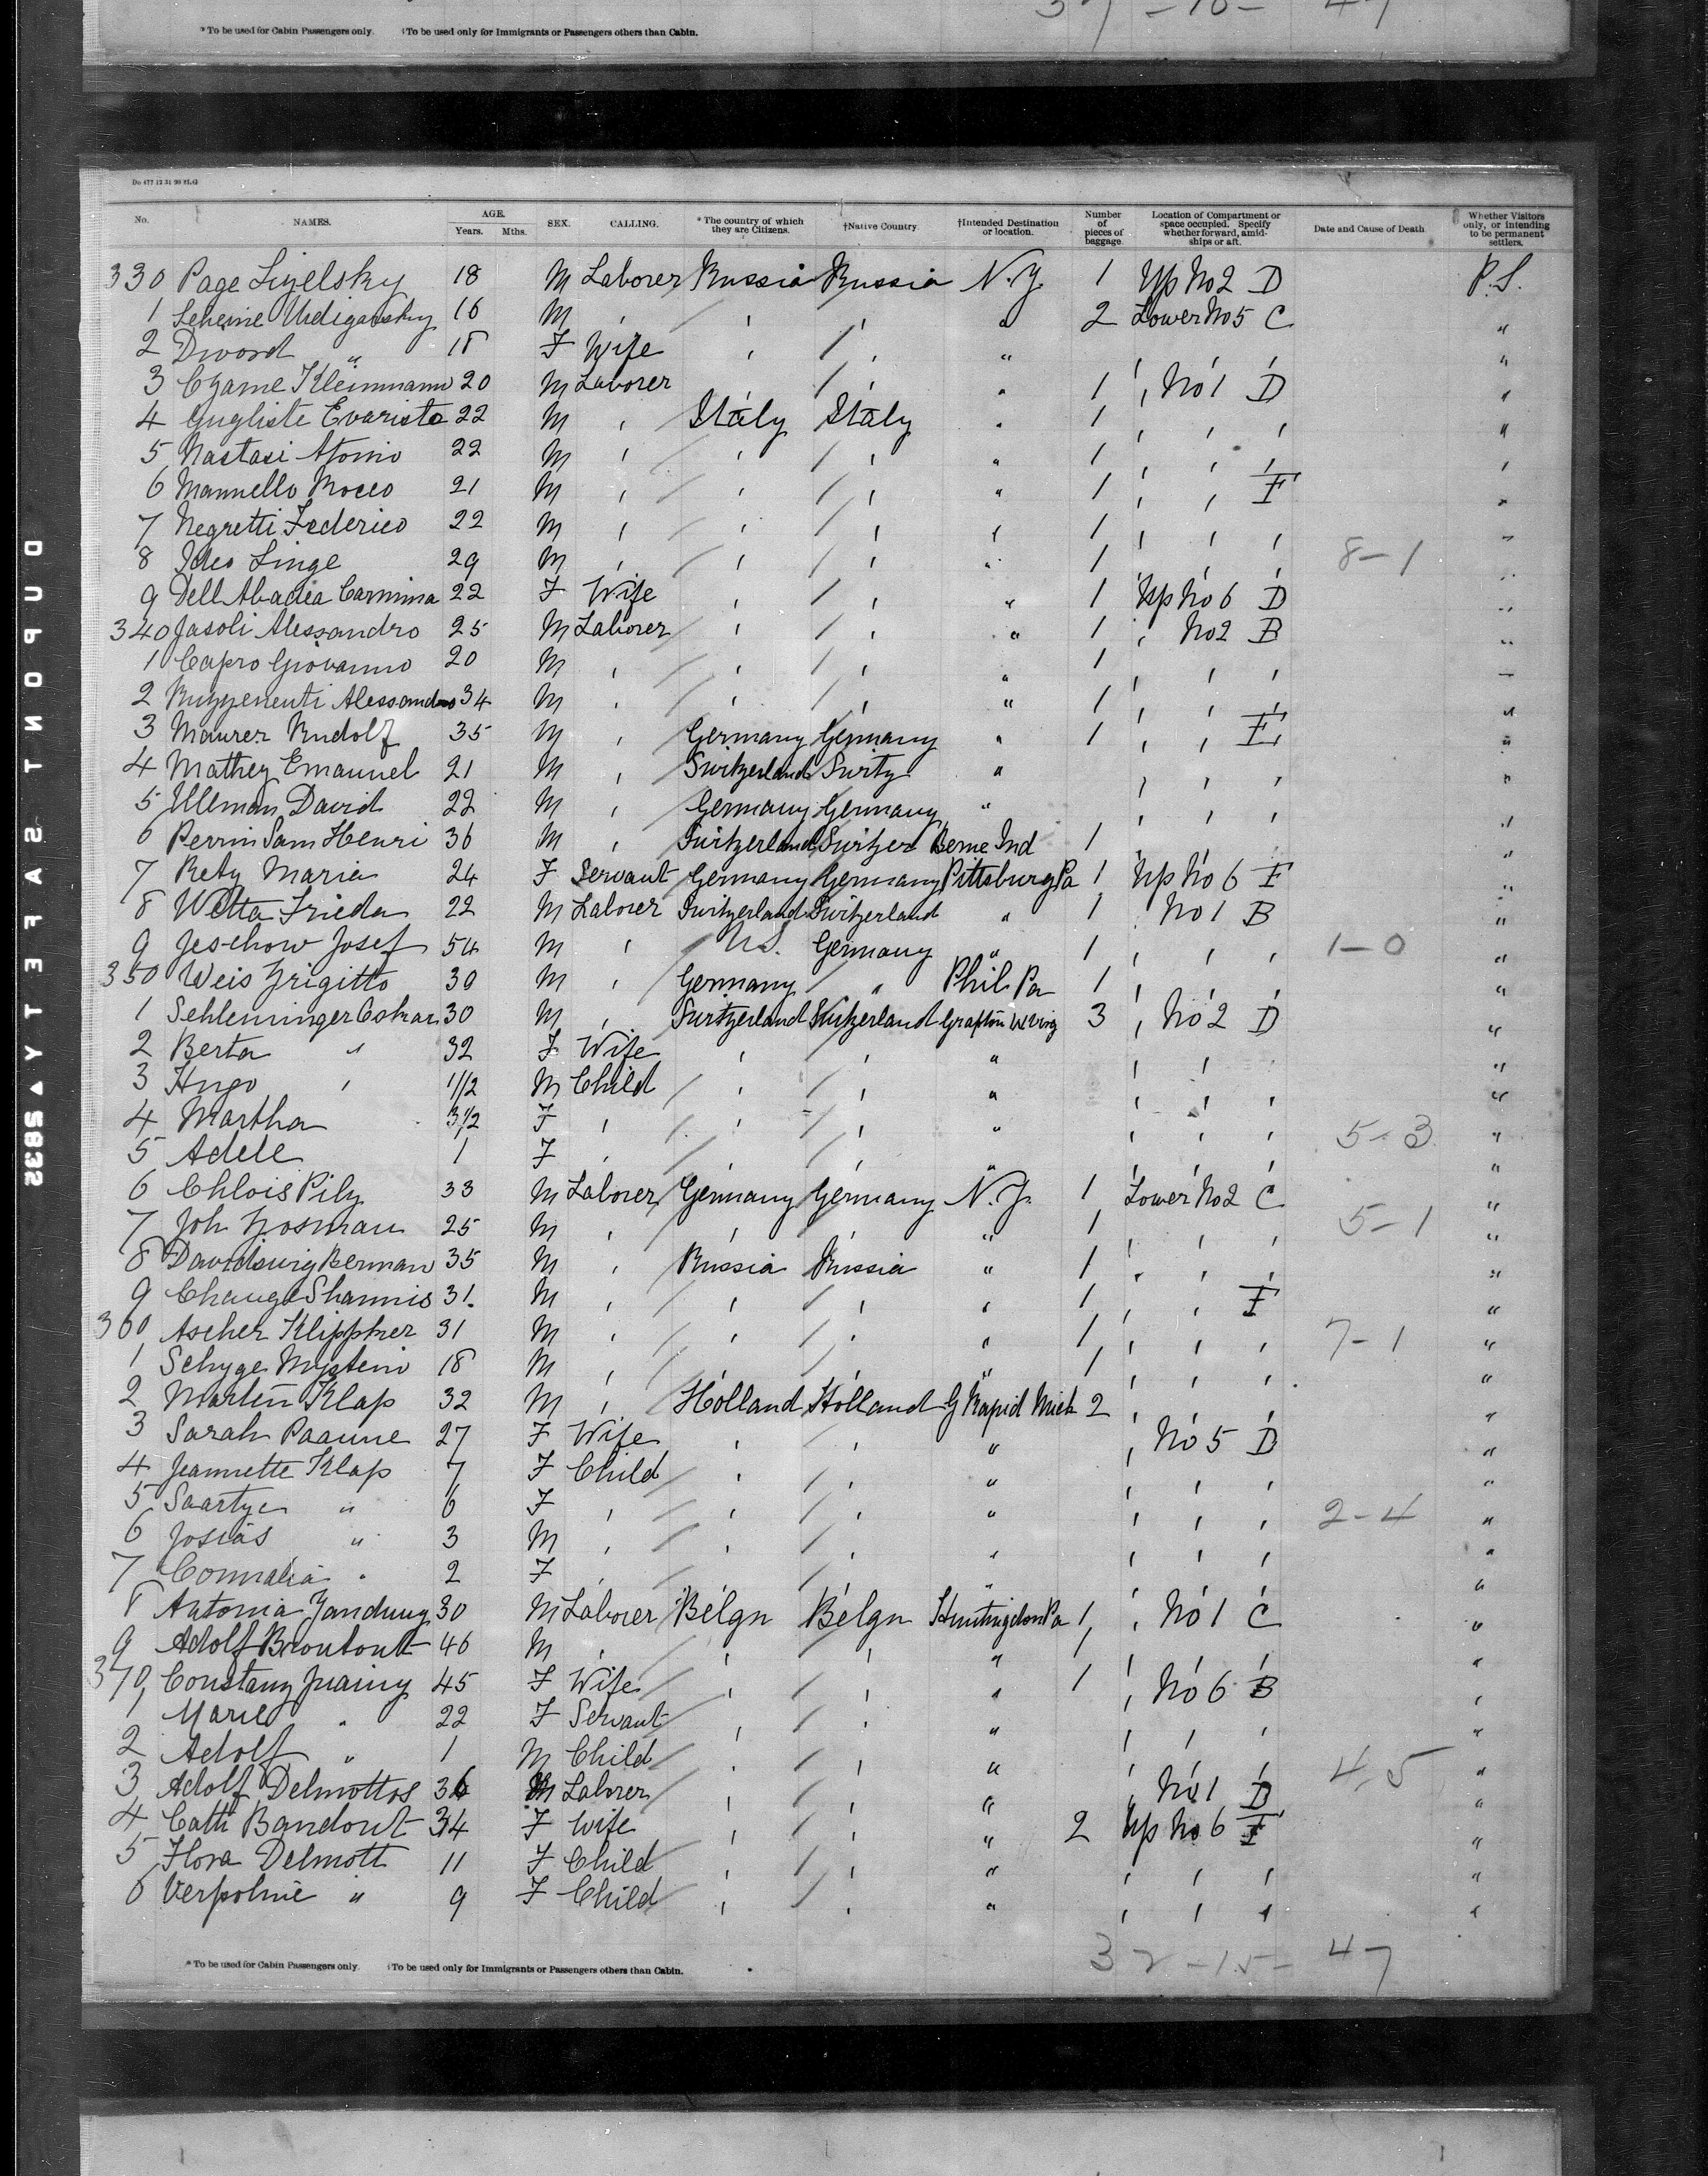 37 - 10 - 47
* To be used for Cabin Passengers only. †To be used only for Immigrants or Passengers others than Cabin.
No. NAMES. AGE. Years. Mths. SEX. CALLING. * The country of which they are Citizens. †Native Country. †Intended Destination or location. Number of pieces of baggage. Location of Compartment or space occupied. Specify whether forward, amidships or aft. Date and Cause of Death. Whether Visitors only, or intending to be permanent settlers.
330 Page 18 M Laborer Russia Russia N.Y. 1 Up No 2 D P.S.
1 16 M , ' ' " 2 Lower No 5 C "
2 " 18 F Wife ' ' " "
3 Kleinmann 20 M Laborer ' " 1 ' No 1 D "
4 Evaristo 22 M ' Italy Italy " 1 ' ' ' "
5 Nastasi 22 M ' ' ' " 1 ' ' ' "
6 Mannello Rocco 21 M ' ' ' " 1 ' ' F "
7 Negretti Federico 22 M ' ' ' " 1 ' ' ' "
8 29 M ' ' ' " 1 ' ' ' 8-1 "
9 Dell Abadia Carmina 22 F Wife ' ' " 1 Up No 6 D "
340 Jasoli Alessandro 25 M Laborer ' ' " 1 ' No 2 B "
1 Capro Giovanno 20 M ' ' ' " 1 ' ' ' "
2 Alessandro 34 M ' ' ' " 1 ' ' ' "
3 Maurer Rudolf 35 M ' Germany Germany " 1 ' ' E "
4 Mathey Emanuel 21 M ' Switzerland Switz " ' ' ' "
5 Ulleman David 22 M ' Germany Germany " ' ' ' "
6 Perrin Sam Henri 36 M ' Switzerland Switzer Berne Ind 1 "
7 Rety Maria 24 F Servant Germany Germany Pittsburg Pa 1 Up No 6 F "
8 Frieda 22 M Laborer Switzerland Switzerland " 1 No 1 B "
9 Jeschow Josef 54 M ' U.S. Germany " 1 ' ' ' 1-0 "
350 Weis 39 M ' Germany " Phil Pa 1 ' ' ' "
1 30 M ' Switzerland Switzerland Grafton W Virg 3 ' No 2 D "
2 Berta " 32 F Wife ' ' " ' ' "
3 Hugo ' 1/2 M Child ' ' " ' ' ' "
4 Martha 3 1/2 F ' ' ' " ' ' ' 5-3 "
5 Adele 1 F ' ' ' " "
6 Chlois Pily 33 M Laborer Germany Germany N.Y. 1 Lower No 2 C "
7 Joh 25 M ' " 1 ' ' ' 5-1 "
8 Berman 35 M ' Russia Russia " 1 ' ' ' "
9 Shannis 31 M ' ' ' " 1 ' ' F "
360 Ascher Klippker 31 M ' ' ' " 1 ' ' ' 7-1 "
1 18 M ' " 1 ' ' ' "
2 Martin Klap 32 M ' Holland Holland G Rapid Mich 2 "
3 Sarah Paaune 27 F Wife ' ' " ' No 5 D "
4 Jeannette Klap 7 F Child ' ' " ' ' ' "
5 Saartye " 6 F ' ' ' " ' ' ' 2-4 "
6 Josias " 3 M ' ' ' " ' ' ' "
7 " 2 F ' " "
8 Antonia 30 M Laborer Belgn Belgn Huntingdon Pa 1 ' No 1 C "
9 Adolf 46 M ' ' ' " "
370 45 F Wife ' ' " 1 ' No 6 B "
1 Marie " 22 F Servant ' ' " ' ' ' "
2 Adolf " 1 M Child ' ' " 4,5 "
3 Adolf Delmottos 36 M Laborer ' ' " ' No 1 B "
4 Catti Bandout 34 F Wife ' ' " 2 Up No 6 F "
5 Flora Delmott 11 F Child ' ' " ' ' ' "
6 " 9 F Child ' ' " ' ' ' "
32 - 15 - 47
* To be used for Cabin Passengers only. †To be used only for Immigrants or Passengers others than Cabin.
DUPONT SAFETY 5832